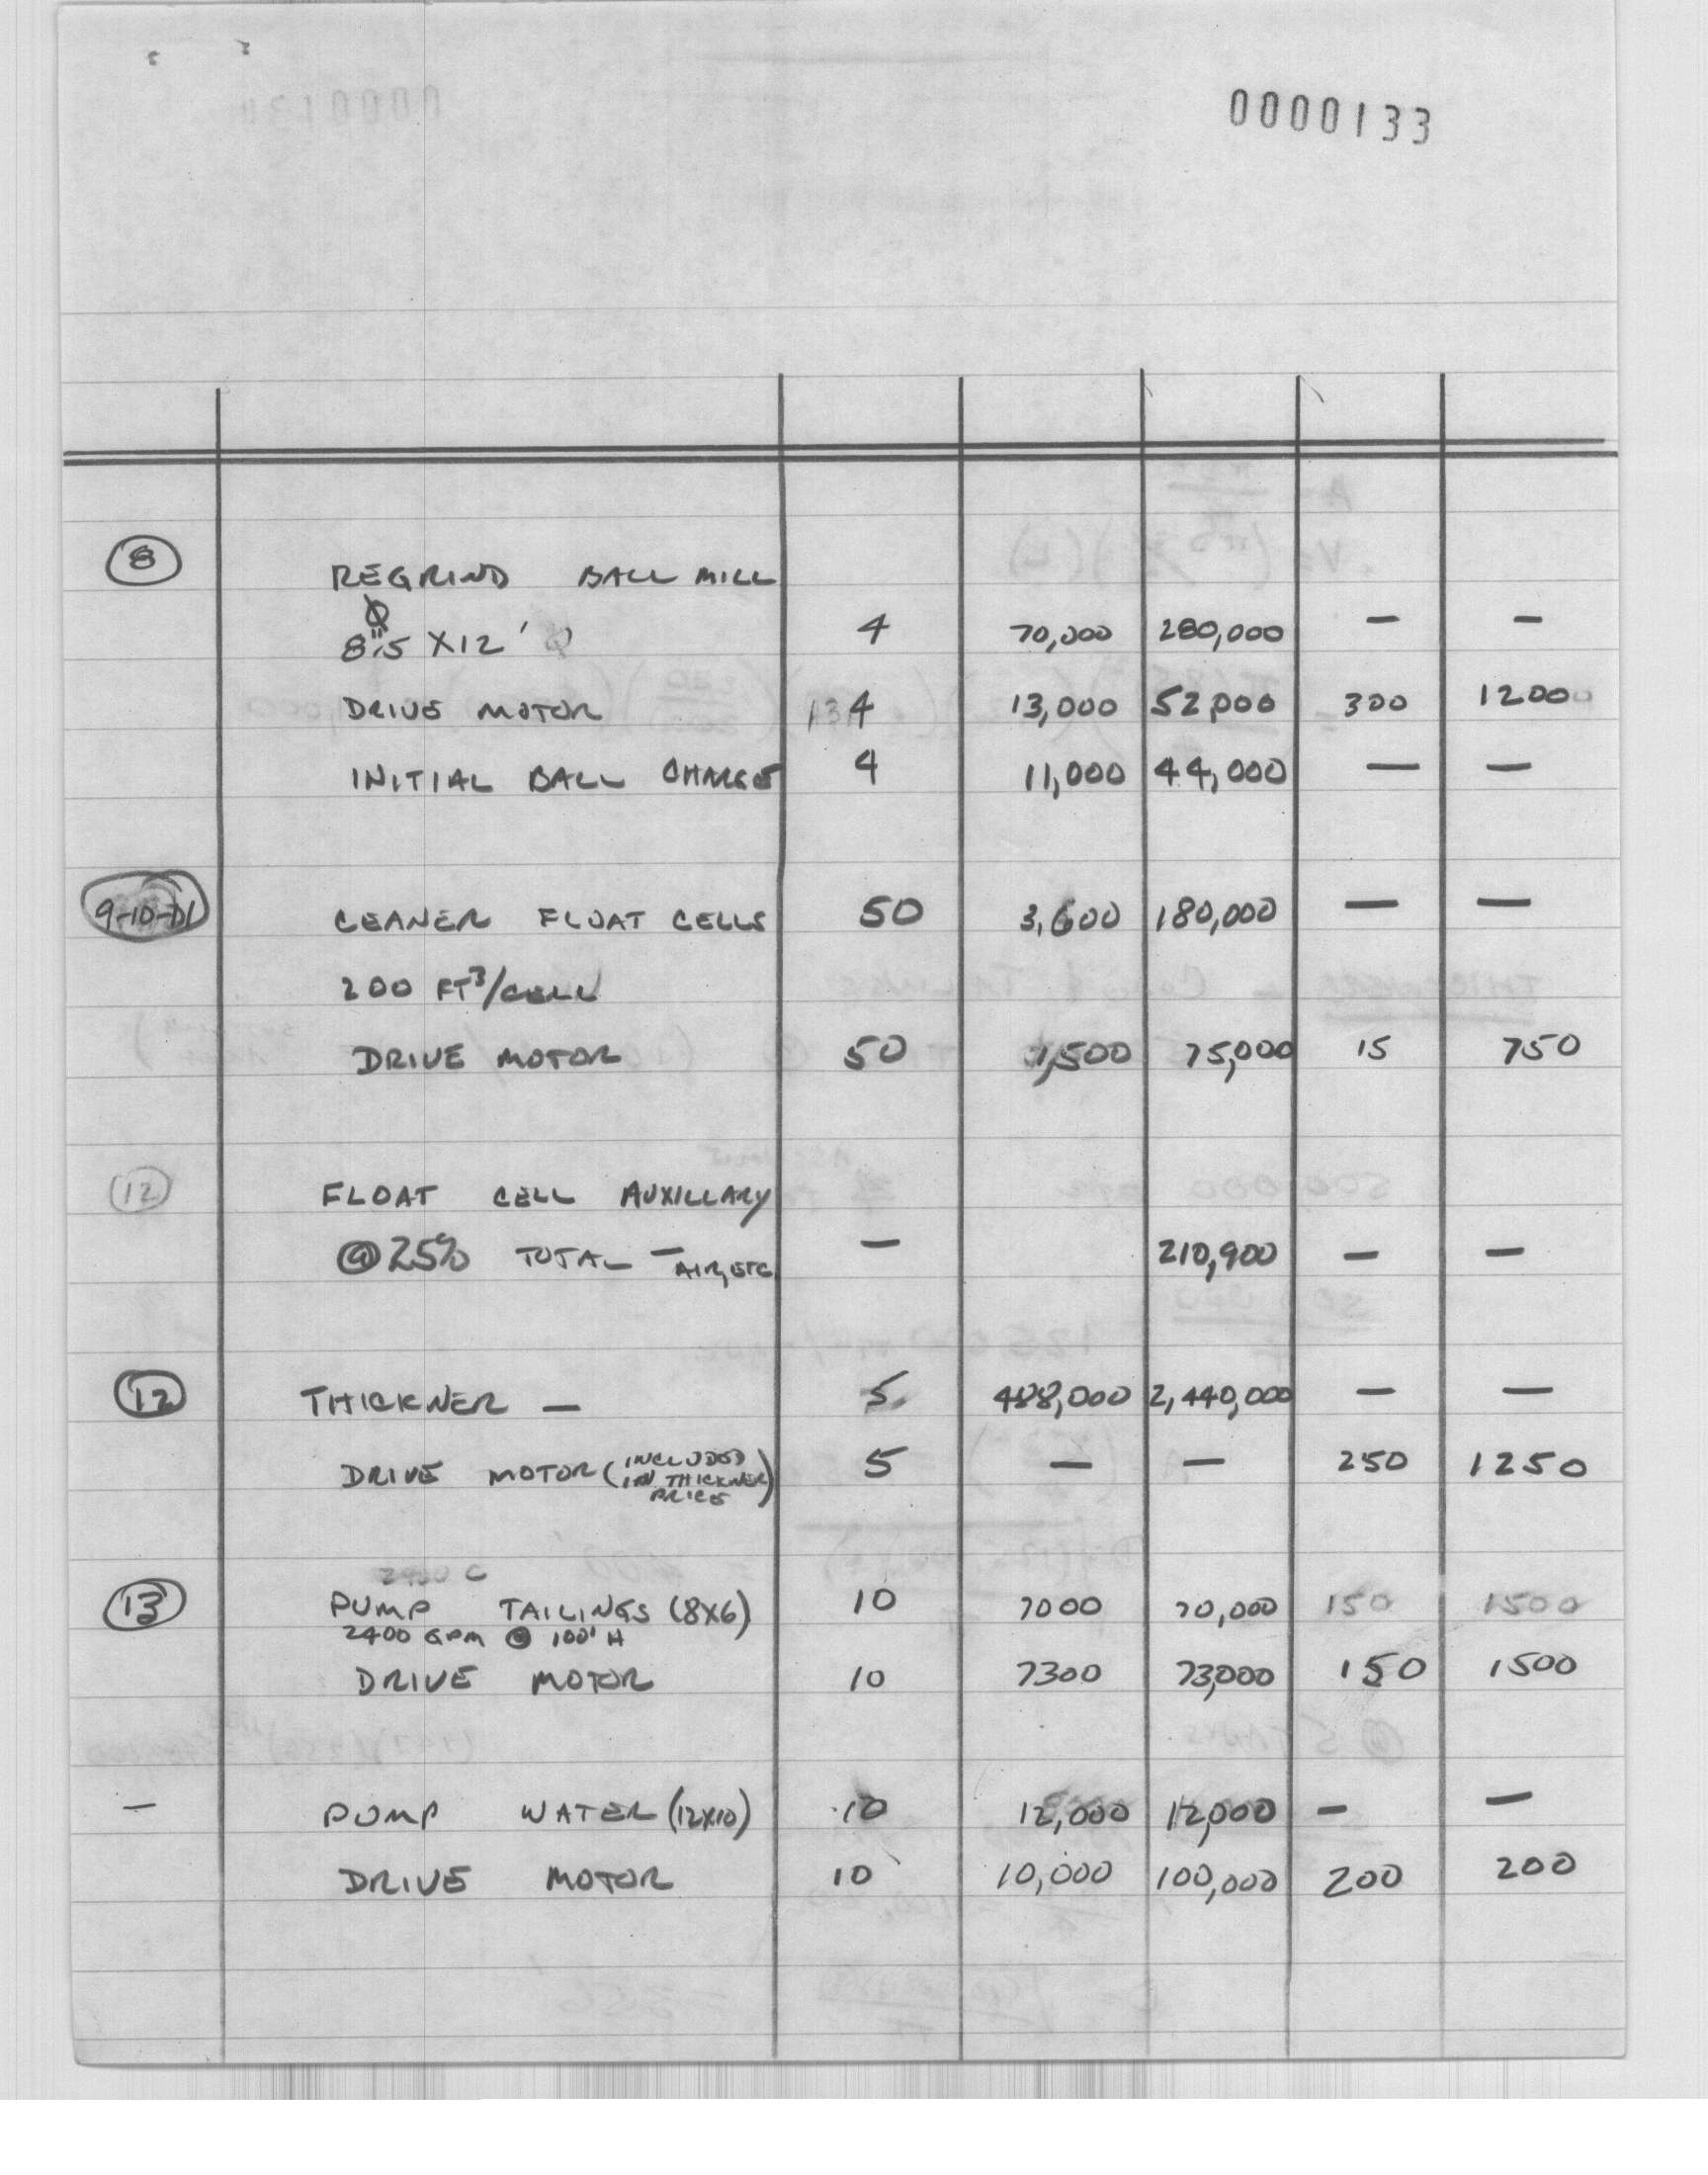 0000133
8 REGRIND BALL MILL
8.5 X12' 4 70,000 280,000 — —
DRIVE MOTOR 4 13,000 52,000 300 1200
INITIAL BALL CHARGE 4 11,000 44,000 — —
CEANER FLOAT CELLS 50 3,600 180,000 — —
200 FT³/CELL
DRIVE MOTOR 50 1,500 75,000 15 750
12 FLOAT CELL AUXILLARY
@ 25% TOTAL — AIR, ETC — 210,900 — —
12 THICKNER — 5 488,000 2,440,000 — —
DRIVE MOTOR (INCLUDED IN THICKNER PRICE) 5 — — 250 1250
13 PUMP TAILINGS (8X6) 10 7000 70,000 150 1500
2400 GPM @ 100' H
DRIVE MOTOR 10 7300 73,000 150 1500
— PUMP WATER (12X10) 10 12,000 12,000 — —
DRIVE MOTOR 10 10,000 100,000 200 200